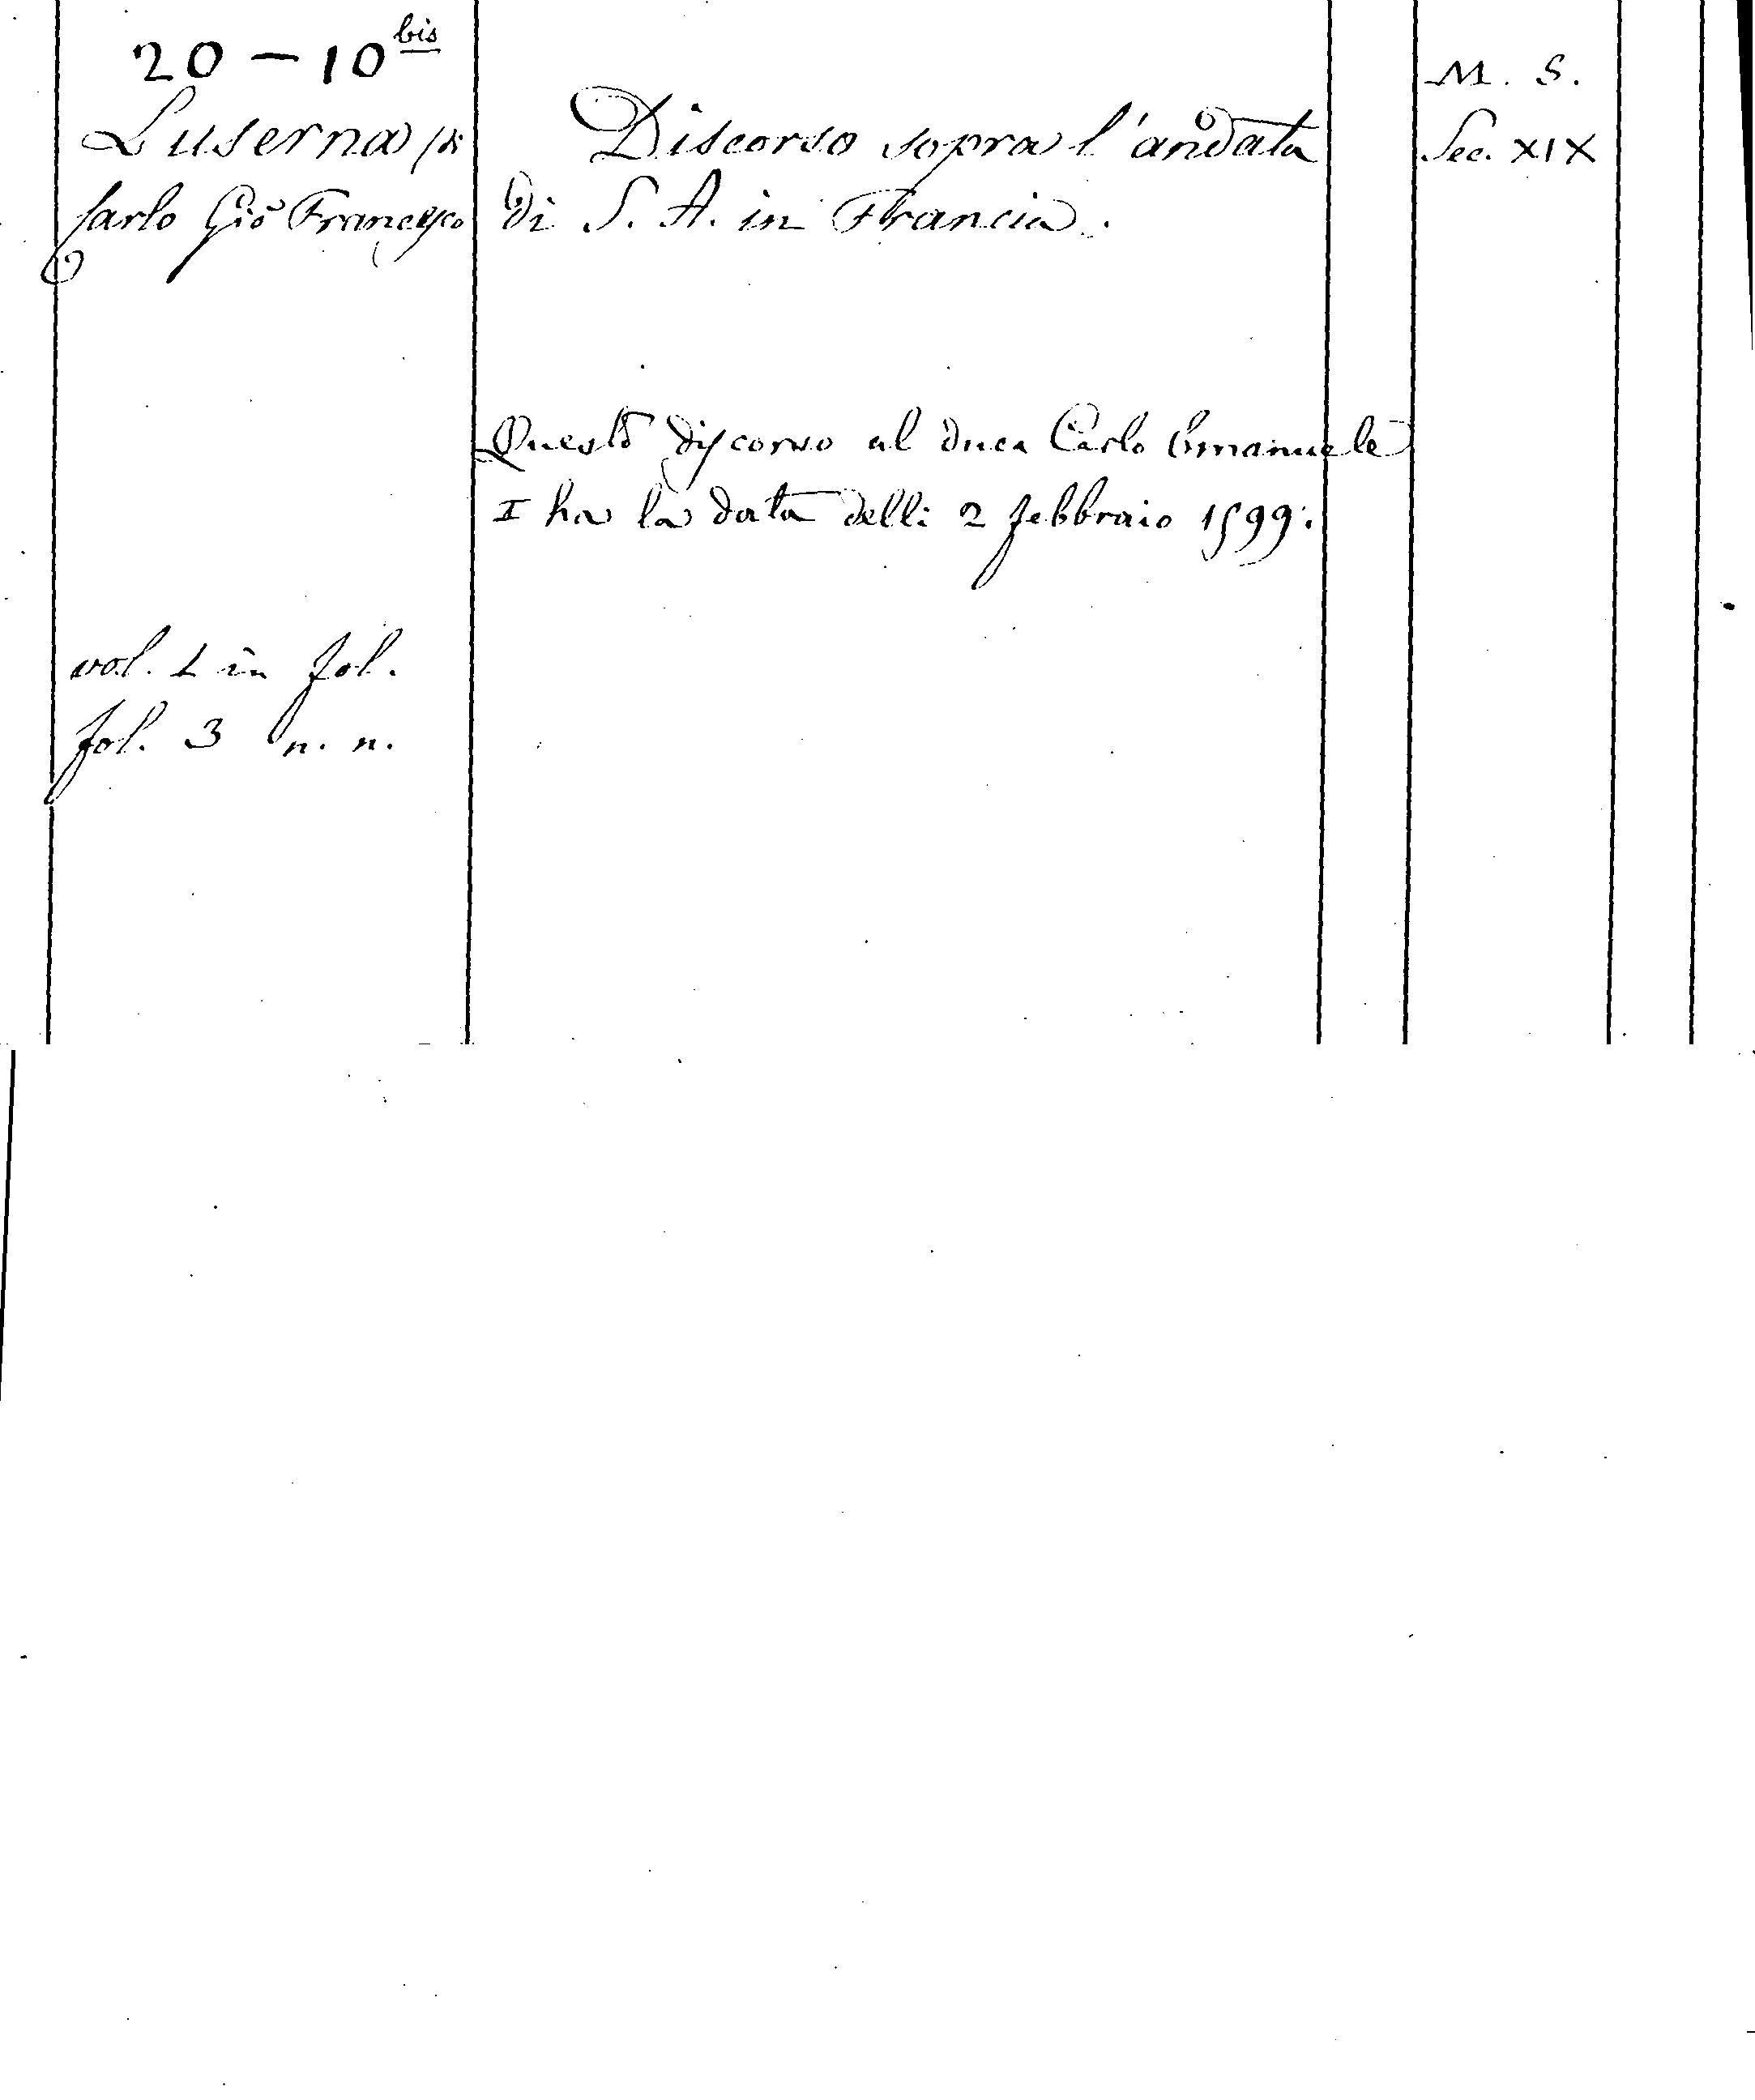 20 - 10 bis
Luserna (di
Carlo Giõ Francesco
Discorso sopra l'andata
di S. A. in Francia.
M. S.
Sec. XIX
Questo discorso al duca Carlo Emanuele
I ha la data delli 2 febbraio 1599.
vol. 1 in fol.
fol. 3 n. n.